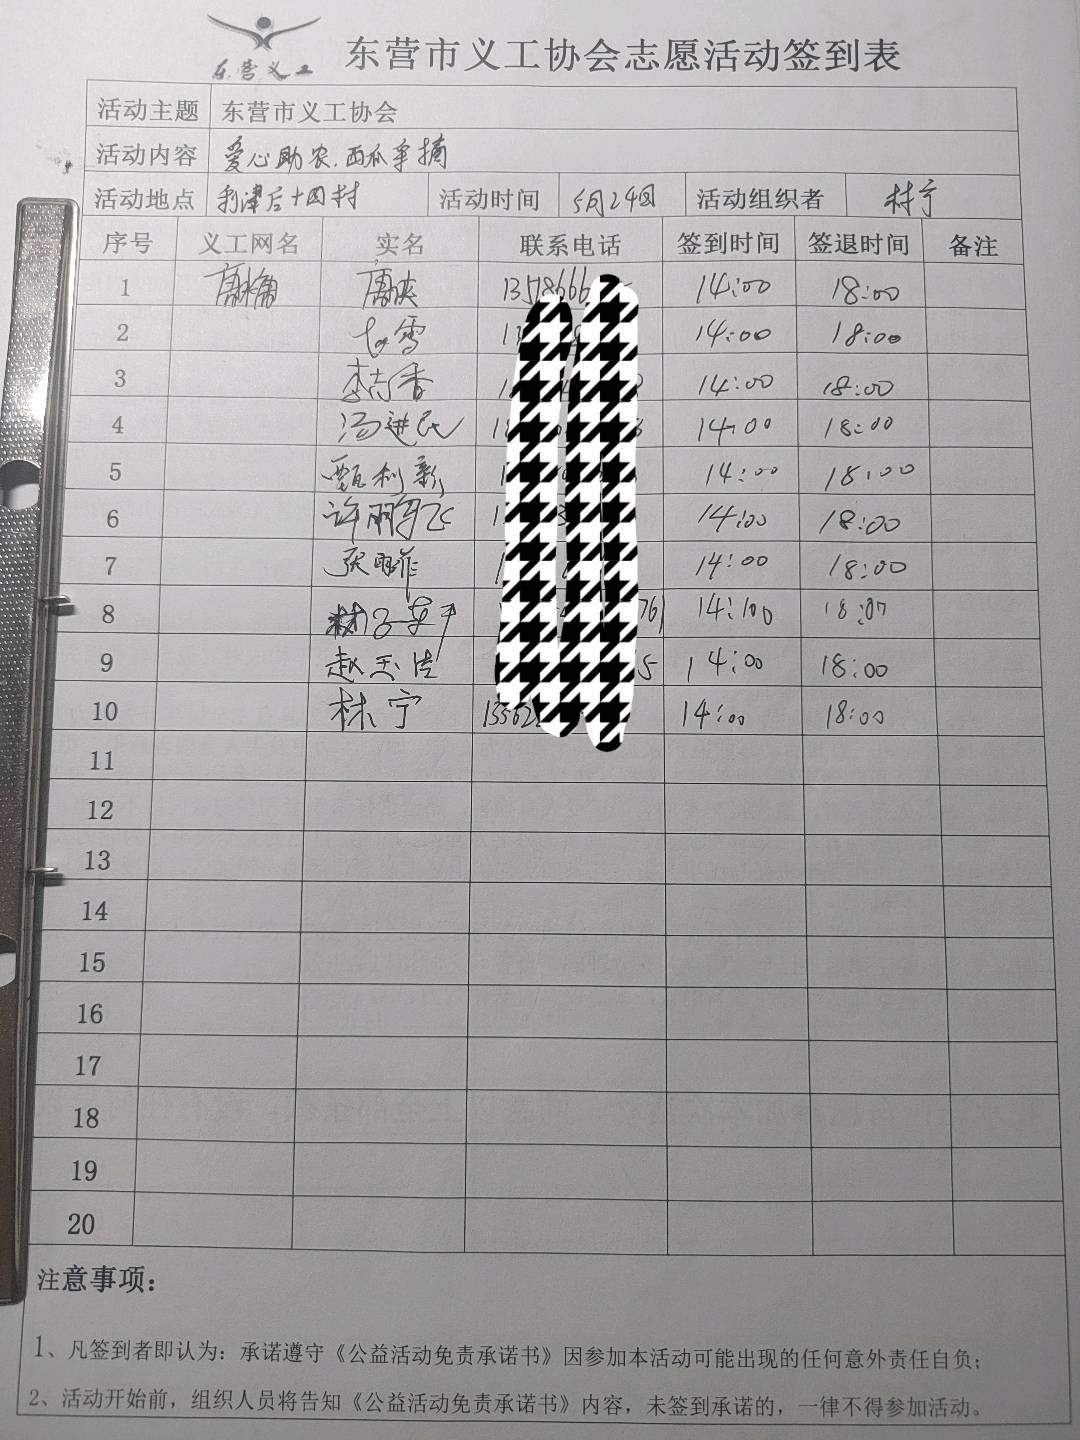 东营义工
东营市义工协会志愿活动签到表
活动主题 东营市义工协会
活动内容 爱心助农.西瓜采摘
活动地点 利津后十四村 活动时间 5月24日 活动组织者 林宁
序号 义工网名 实名 联系电话 签到时间 签退时间 备注
1 13518666 14:00 18:00
2 14:00 18:00
3 李志香 14:00 18:00
4 汤进民 14:00 18:00
5 甄利新 14:00 18:00
6 许鹏飞 14:00 18:00
7 张 14:00 18:00
8 761 14:00 18:07
9 赵玉洁 5 14:00 18:00
10 林宁 13562 14:00 18:00
11
12
13
14
15
16
17
18
19
20
注意事项：
1、凡签到者即认为：承诺遵守《公益活动免责承诺书》因参加本活动可能出现的任何意外责任自负；
2、活动开始前，组织人员将告知《公益活动免责承诺书》内容，未签到承诺的，一律不得参加活动。